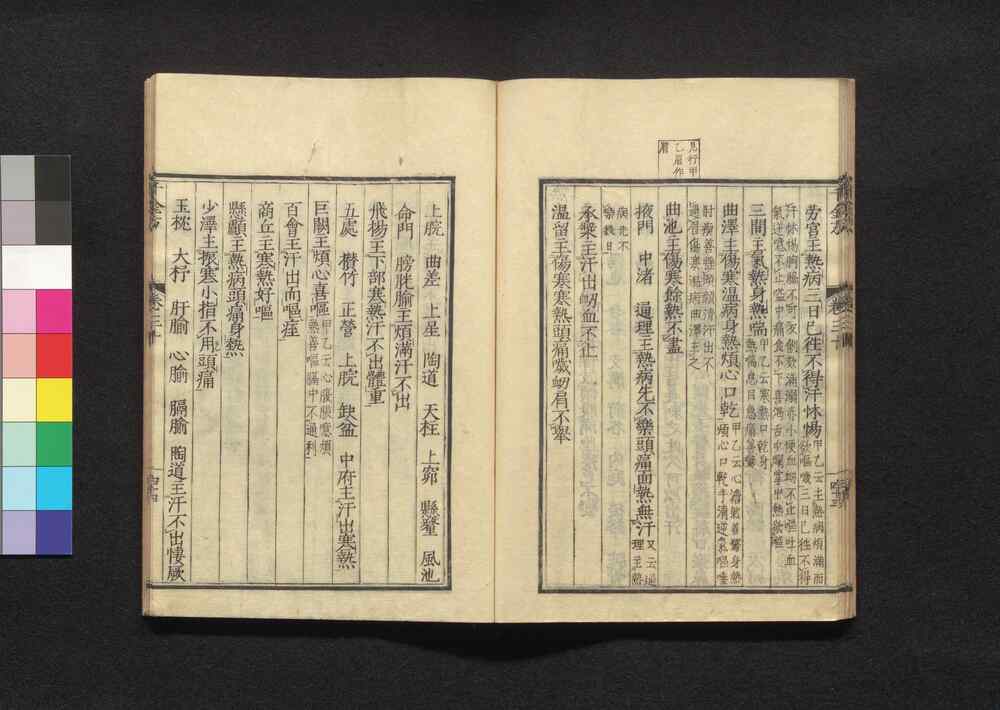 見行甲
乙眉作
肩
勞宮主熱病三日已往不得汗怵惕
甲乙云主熱病煩滿而
欲嘔噦三日已往不得
汗怵惕胸脇不可反側欬滿溺赤小便血衄不止嘔吐血
氣逆噫不止嗌中痛食不下善渴舌中爛掌中熱欲嘔
三間主氣熱身熱喘
甲乙云寒熱口乾身
熱喘息目急痛善驚
曲澤主傷寒溫病身熱煩心口乾
甲乙云心澹澹善驚身熱
煩心口乾手清逆氣嘔唾
肘瘈善搖頭顏清汗出不
過肩傷寒溫病曲澤主之
曲池主傷寒餘熱不盡
掖門 中渚 通理主熱病先不樂頭痛面熱無汗
又云通
理主熱
病先不
樂數日
承漿主汗出衄血不止
溫留主傷寒寒熱頭痛噦衄肩不舉
千金方 卷三十
上脘 曲差 上星 陶道 天柱 上窌 懸釐 風池
命門 膀胱腧主煩滿汗不出
飛揚主下部寒熱汗不出體重
五處 攢竹 正營 上脘 缺盆 中府主汗出寒熱
巨闕主煩心喜嘔
甲乙云心腹脹噫煩
熱善嘔膈中不通利
百會主汗出而嘔痓
商丘主寒熱好嘔
懸顱主熱病頭痛身熱
少澤主振寒小指不用頭痛
玉枕 大杼 肝腧 心腧 膈腧 陶道主汗不出悽厥
千金方 卷三十 四十四